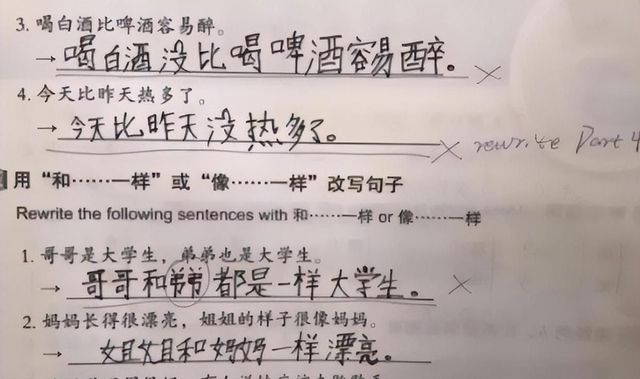 3. 喝白酒比啤酒容易醉。
→ 喝白酒没比喝啤酒容易醉。 ×
4. 今天比昨天热多了。
→ 今天比昨天没热多了。 × rewrite Part 4
用“和……一样”或“像……一样”改写句子
Rewrite the following sentences with 和……一样 or 像……一样
1. 哥哥是大学生，弟弟也是大学生。
→ 哥哥和弟弟都是一样大学生。 ×
2. 妈妈长得很漂亮，姐姐的样子很像妈妈。
→ 姐姐和妈妈一样漂亮。